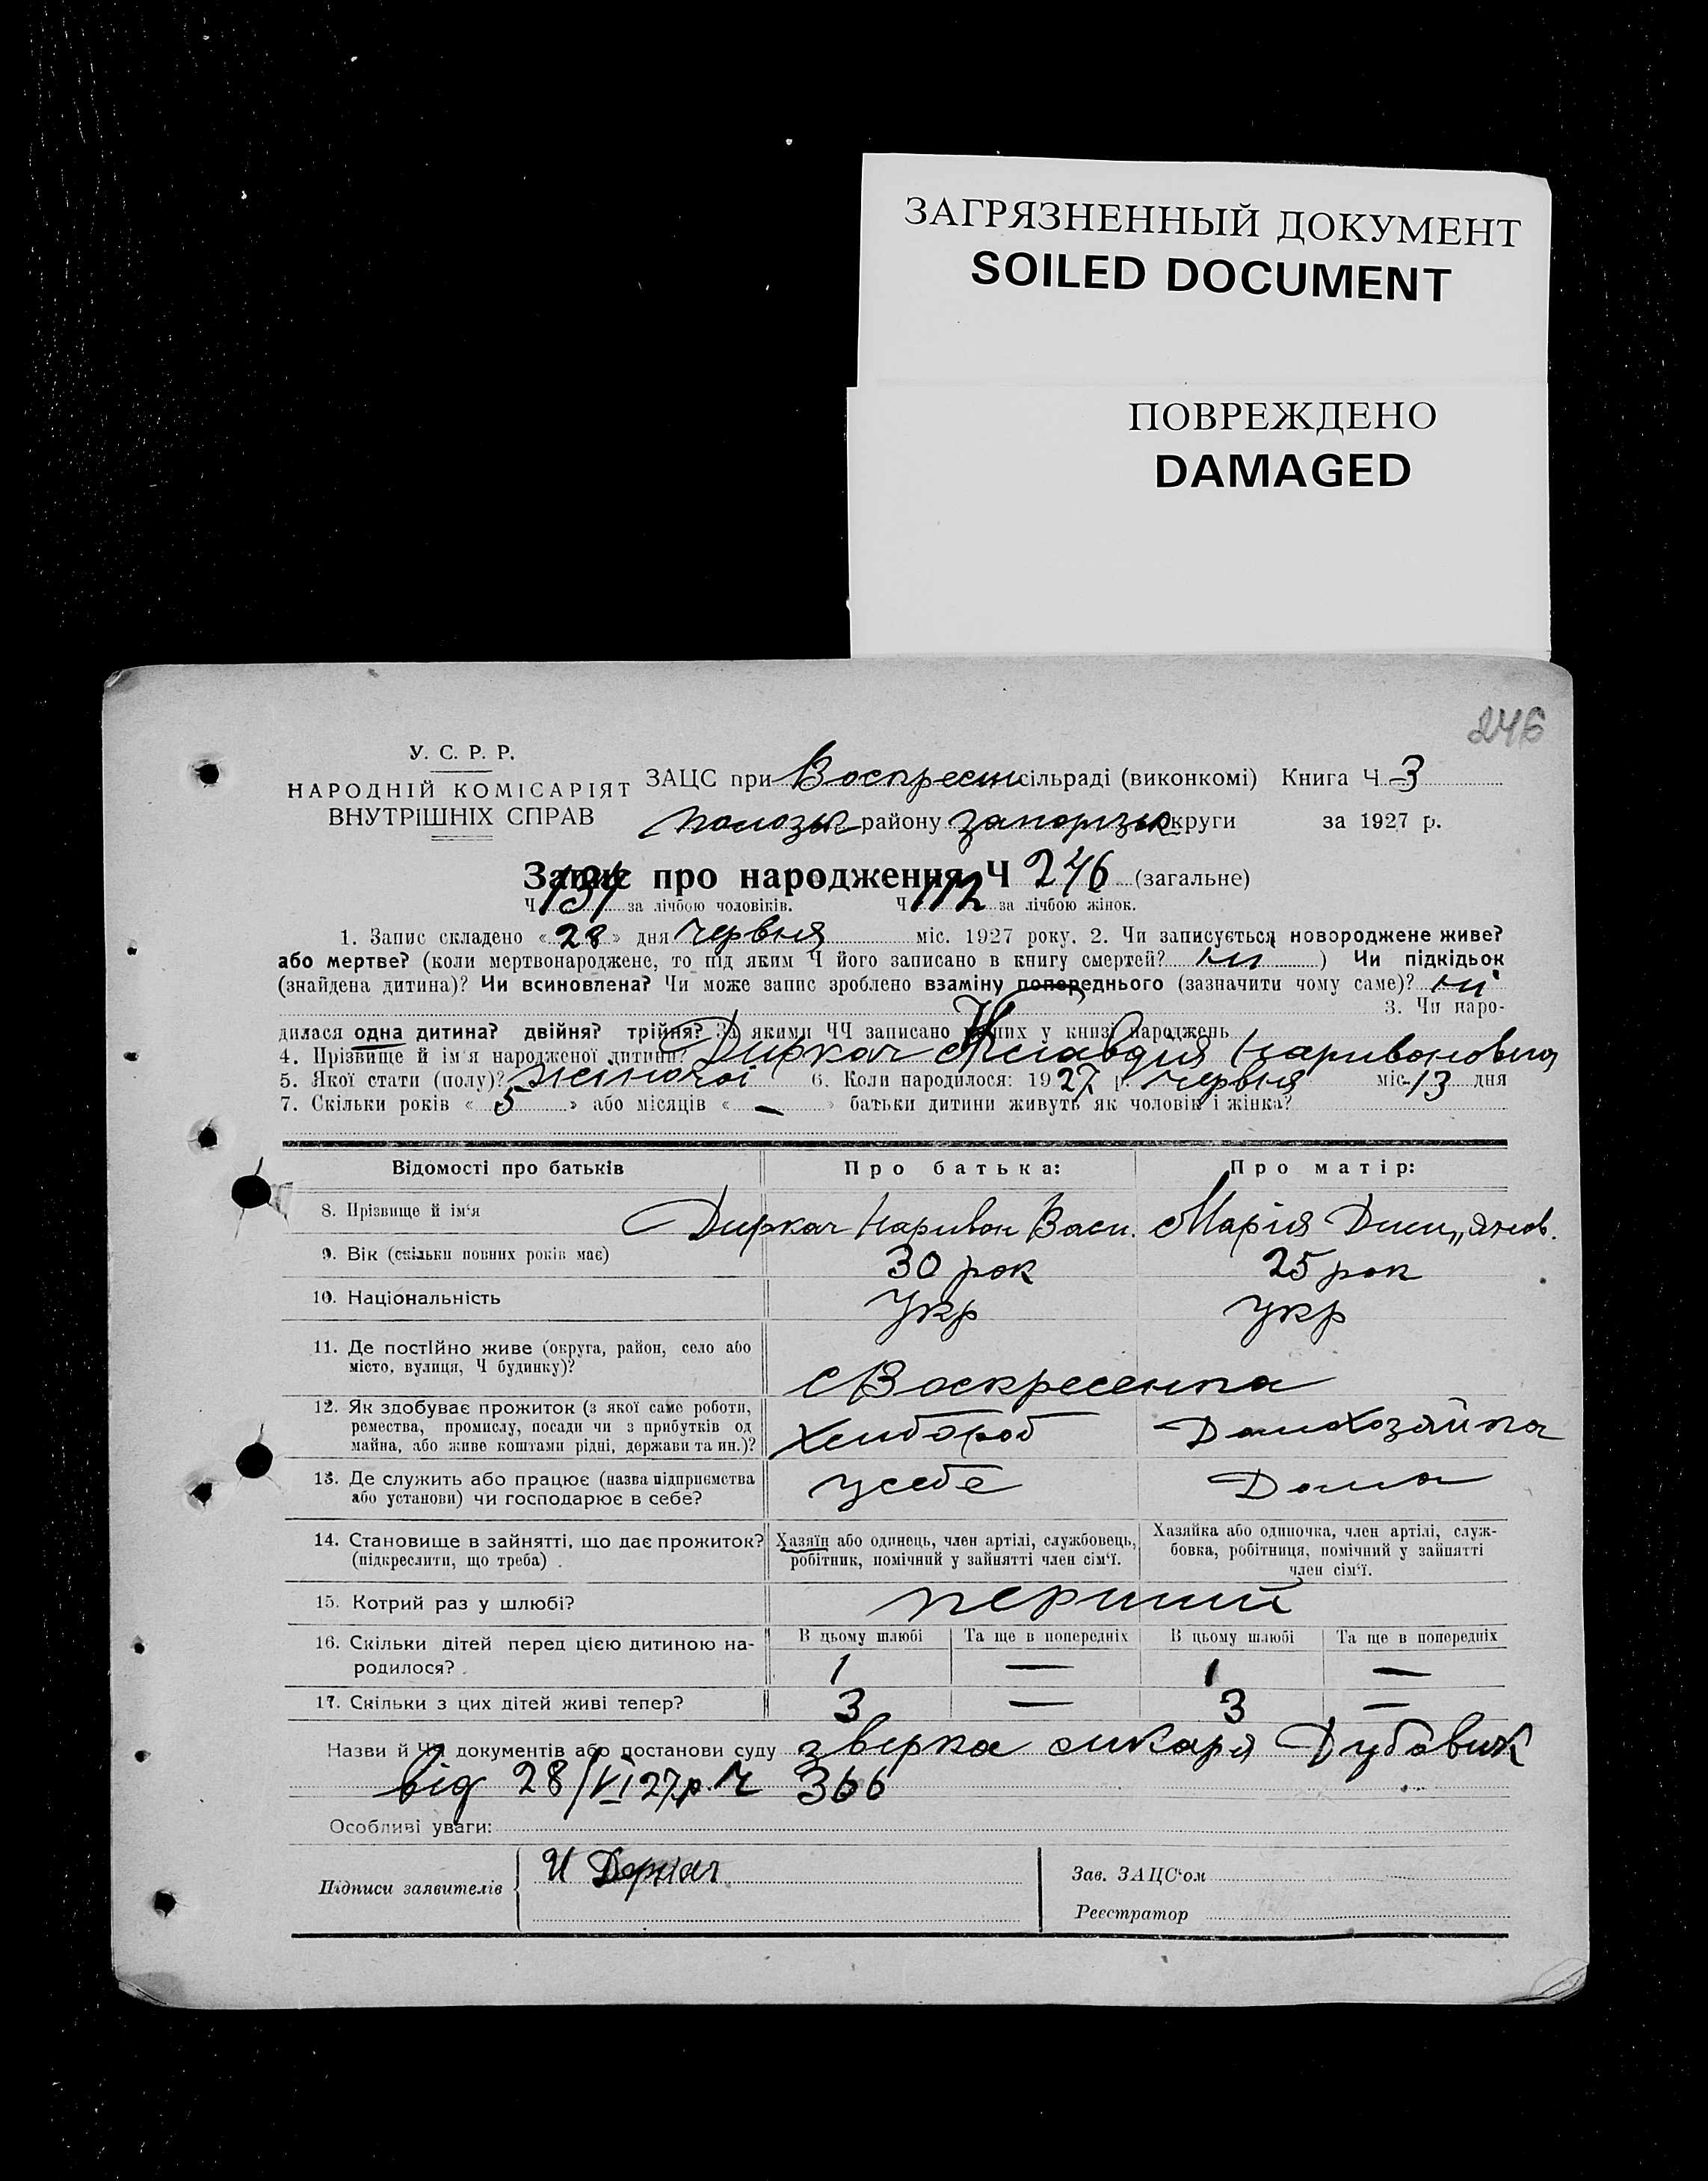 ЗАГРЯЗНЕННЫЙ ДОКУМЕНТ
SOILED DOCUMENT
ПОВРЕЖДЕНО
DAMAGED
246
У. С. Р. Р.
НАРОДНІЙ КОМІСАРІЯТ
ВНУТРІШНІХ СПРАВ
ЗАЦС при Воскресен сільраді (виконкомі) Книга Ч 3
Пологзьк району Запорізьк округи за 1927 р.
Запис про народження Ч 246 (загальне)
Ч 134 за лічбою чоловіків. Ч 112 за лічбою жінок.
1. Запис складено «28» дня червня міс. 1927 року. 2. Чи записується новороджене живе?
або мертве? (коли мертвонароджене, то під яким Ч його записано в книгу смертей? ні) Чи підкідьок
(знайдена дитина)? Чи всиновлена? Чи може запис зроблено взаміну попереднього (зазначити чому саме)? ні
3. Чи наро-
дилася одна дитина? двійня? трійня? З якими ЧЧ записано інших у книзі народжень
4. Прізвище й ім'я народженої дитини? Диркач Клавдия
5. Якої стати (полу)? жіночої 6. Коли народилося: 1927 р. червня міс. 13 дня
7. Скільки років «5» або місяців «—» батьки дитини живуть як чоловік і жінка?
Відомості про батьків Про батька: Про матір:
8. Прізвище й ім'я Диркач Наривон Васи. Марія
9. Вік (скільки повних років має) 30 рок 25 рок
10. Національність Укр Укр
11. Де постійно живе (округа, район, село або
місто, вулиця, Ч будинку)? с Воскресенка
12. Як здобуває прожиток (з якої саме роботи,
ремества, промислу, посади чи з прибутків од
майна, або живе коштами рідні, держави та ин.)? Хлибороб Домохозяйка
13. Де служить або працює (назва підприємства
або установи) чи господарює в себе? усебе Дома
14. Становище в зайнятті, що дає прожиток?
(підкреслити, що треба)
Хазяїн або одинець, член артілі, службовець,
робітник, помічний у зайнятті член сім'ї.
Хазяйка або одиночка, член артілі, служ-
бовка, робітниця, помічний у зайнятті
член сім'ї.
15. Котрий раз у шлюбі? перший
16. Скільки дітей перед цією дитиною на-
родилося?
В цьому шлюбі Та ще в попередніх В цьому шлюбі Та ще в попередніх
1 — 1 —
17. Скільки з цих дітей живі тепер? 3 — 3 —
Назви й ЧЧ документів або постанови суду ликаря Дубовик
від 28/VI 27 р. Ч 366
Особливі уваги:
Підписи заявителів
Зав. ЗАЦС'ом
Реєстратор